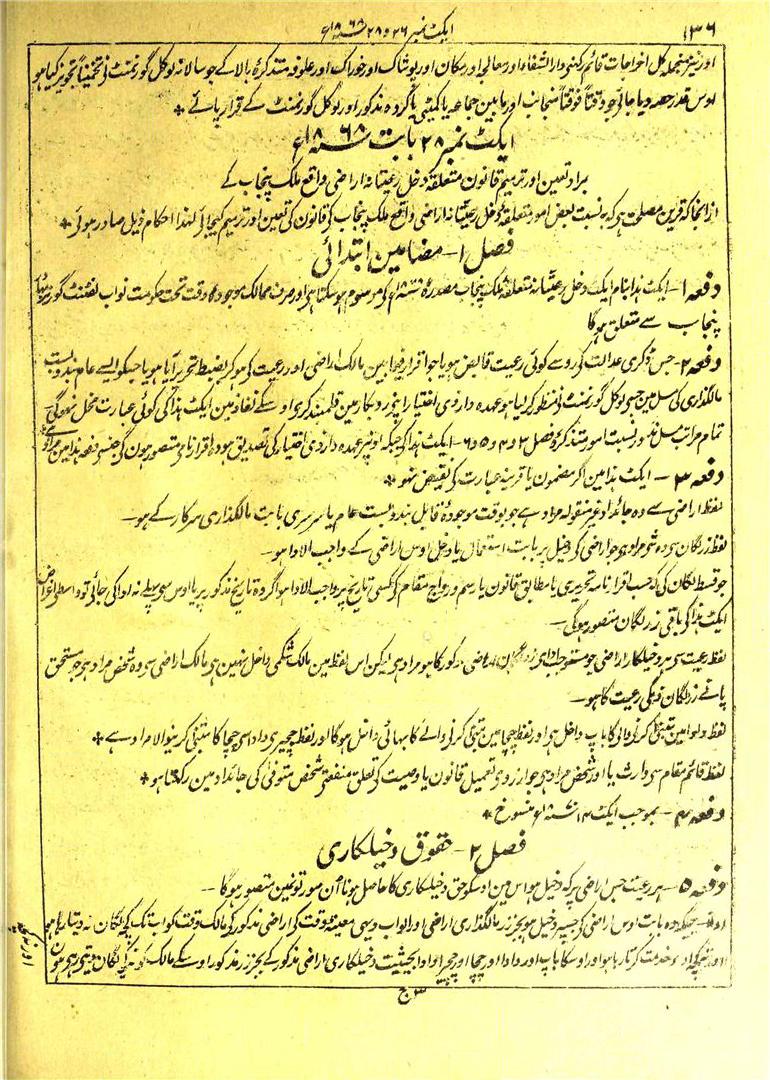 ۱۳۶
ایکٹ نمبر ۲۶ و ۲۸ سنہ ۱۸۶۸ء
اور نیز منجملہ کل اخراجات قائم رکھنی دار الشفاء اور معالجہ اور مکان اور پوشاک اور خوراک اور علوفہ متذکرۂ بالا کے جو سالانہ لوکل گورنمنٹ نی تخمیناً تجویز کیا ہو
اوس قدر حصہ دیا جائی جو وقتاً فوقتاً منجانب اور مابین جماعہ یا کمیٹی یا گروہ مذکور اور لوکل گورنمنٹ کے قرار پائے *
ایکٹ نمبر ۲۸ بابت سنہ ۱۸۶۸ء
بمراد تعین اور ترمیم قانون متعلقہ دخل رعیتانہ اراضی واقع ملک پنجاب کے
از انجا کہ قرین مصلحت ہی کہ بہ نسبت بعض امور متعلقہ دخل رعیتانہ اراضی واقع ملک پنجاب کی قانون کی تعین اور ترمیم کیجائے لہذا احکام ذیل صادر ہوئے *
فصل ۱ — مضامین ابتدائی
دفعہ ۱ — ایکٹ ہذا بنام ایکٹ دخل رعیتانہ متعلقہ ملک پنجاب مصدرۂ سنہ ۱۸۶۸ء کی موسوم ہو سکتا ہی اور صرف ممالک موجودہ وقت تحت حکومت نواب لفٹنٹ گورنر بہادر
پنجاب سے متعلق ہوگا
دفعہ ۲ — جس ڈگری عدالت کی رو سے کوئی رعیت قابض ہو یا جو اقرار فیما بین مالک اراضی اور رعیت کی ہو کر بضبط تحریر آیا ہو یا جبکہ ایسے عام بندوبست
مالگذاری کی مسل مین جسی لوکل گورنمنٹ نی منظور کر لیا ہو عہدہ دار ذی اختیار اپنی روبکار مین قلمبند کری اوسکے نفاذ مین ایکٹ ہذا کی کوئی عبارت مخل نہوگی —
تمام مراتب مسل مذکور نسبت امور متذکرہ فصل ۳ و ۴ و ۵ و ۶ — ایکٹ ہذا کی جبکہ اونپر عہدہ دار ذی اختیار کی تصدیق ہو وہ اقرارنامی متصور ہون گی حسب دفعہ ہذا مین مراد ہے
دفعہ ۳ — ایکٹ ہذا مین اگر مضمون یا قرینہ عبارت کی نقیض نہو *
لفظ اراضی سے وہ جائداد غیر منقولہ مراد ہے جو بوقت موجودۂ قابل بندوبست عام یا سرسری بابت مالگذاری سرکار کے ہو —
لفظ زر لگان سی وہ شی مراد ہی جو اراضی کی دخیل پر بابت استعمال یا دخل اوس اراضی کے واجب الادا ہو —
جو قسط لگان کی کہ حسب اقرارنامہ تحریری یا مطابق قانون یا رسم و رواج مقام کی کسی تاریخ پر واجب الادا ہو اگر وہ تاریخ مذکور پر یا اوس سی پہلے نہ ادا کی جائی تو واسطی اغراض
ایکٹ ہذا کی باقی زر لگان متصور ہوگی —
لفظ رعیت سی ہر دخیلکار اراضی جو مستوجب ادای زر لگان اراضی مذکور کا ہو مراد ہی لیکن اس لفظ مین مالک شکمی داخل نہین ہی مالک اراضی سی وہ شخص مراد ہی جو مستحق
پانے زر لگان ذمگی رعیت کا ہو —
لفظ ولد مین متبنی کرنی والی کا باپ داخل ہی اور لفظ چچا مین متبنی کرنی والے کا بھائی داخل ہوگا اور لفظ چچیری دادا سی چچا کا متبنی کرنیوالا مراد ہے *
لفظ قائم مقام سی وارث یا اور شخص مراد ہی جو از روی تعمیل قانون یا وصیت کی تعلق منفعتی شخص متوفی کی جائداد مین رکھتا ہو *
دفعہ ۴ — بموجب ایکٹ ۱۴ سنہ ۱۸ء منسوخ *
فصل ۲ — حقوق دخیلکاری
دفعہ ۵ — ہر رعیت جس اراضی پر کہ دخیل ہو اس مین اوسکو حق دخیلکاری کا حاصل ہونا ان صورتونمین متصور ہوگا —
اولاً — جبکہ وہ بابت اوس اراضی کی جسپر دخیل ہو بجز زر مالگذاری اراضی اور ابواب دیہی معینہ وقت کی اراضی مذکور کی مالک وقت کو اب تک کچھ لگان نہ دیتا رہا ہو
اور نیز کچھ اور خدمت کرتا رہا ہو اور اوسکا باپ اور دادا اور چچا اور چچیرا دادا بحیثیت دخیلکاری اراضی مذکور کے بجز زر مذکور اوسکے مالک کو نہ لگان دیتی رہی ہون
اور نہ کچھ
ج ۳